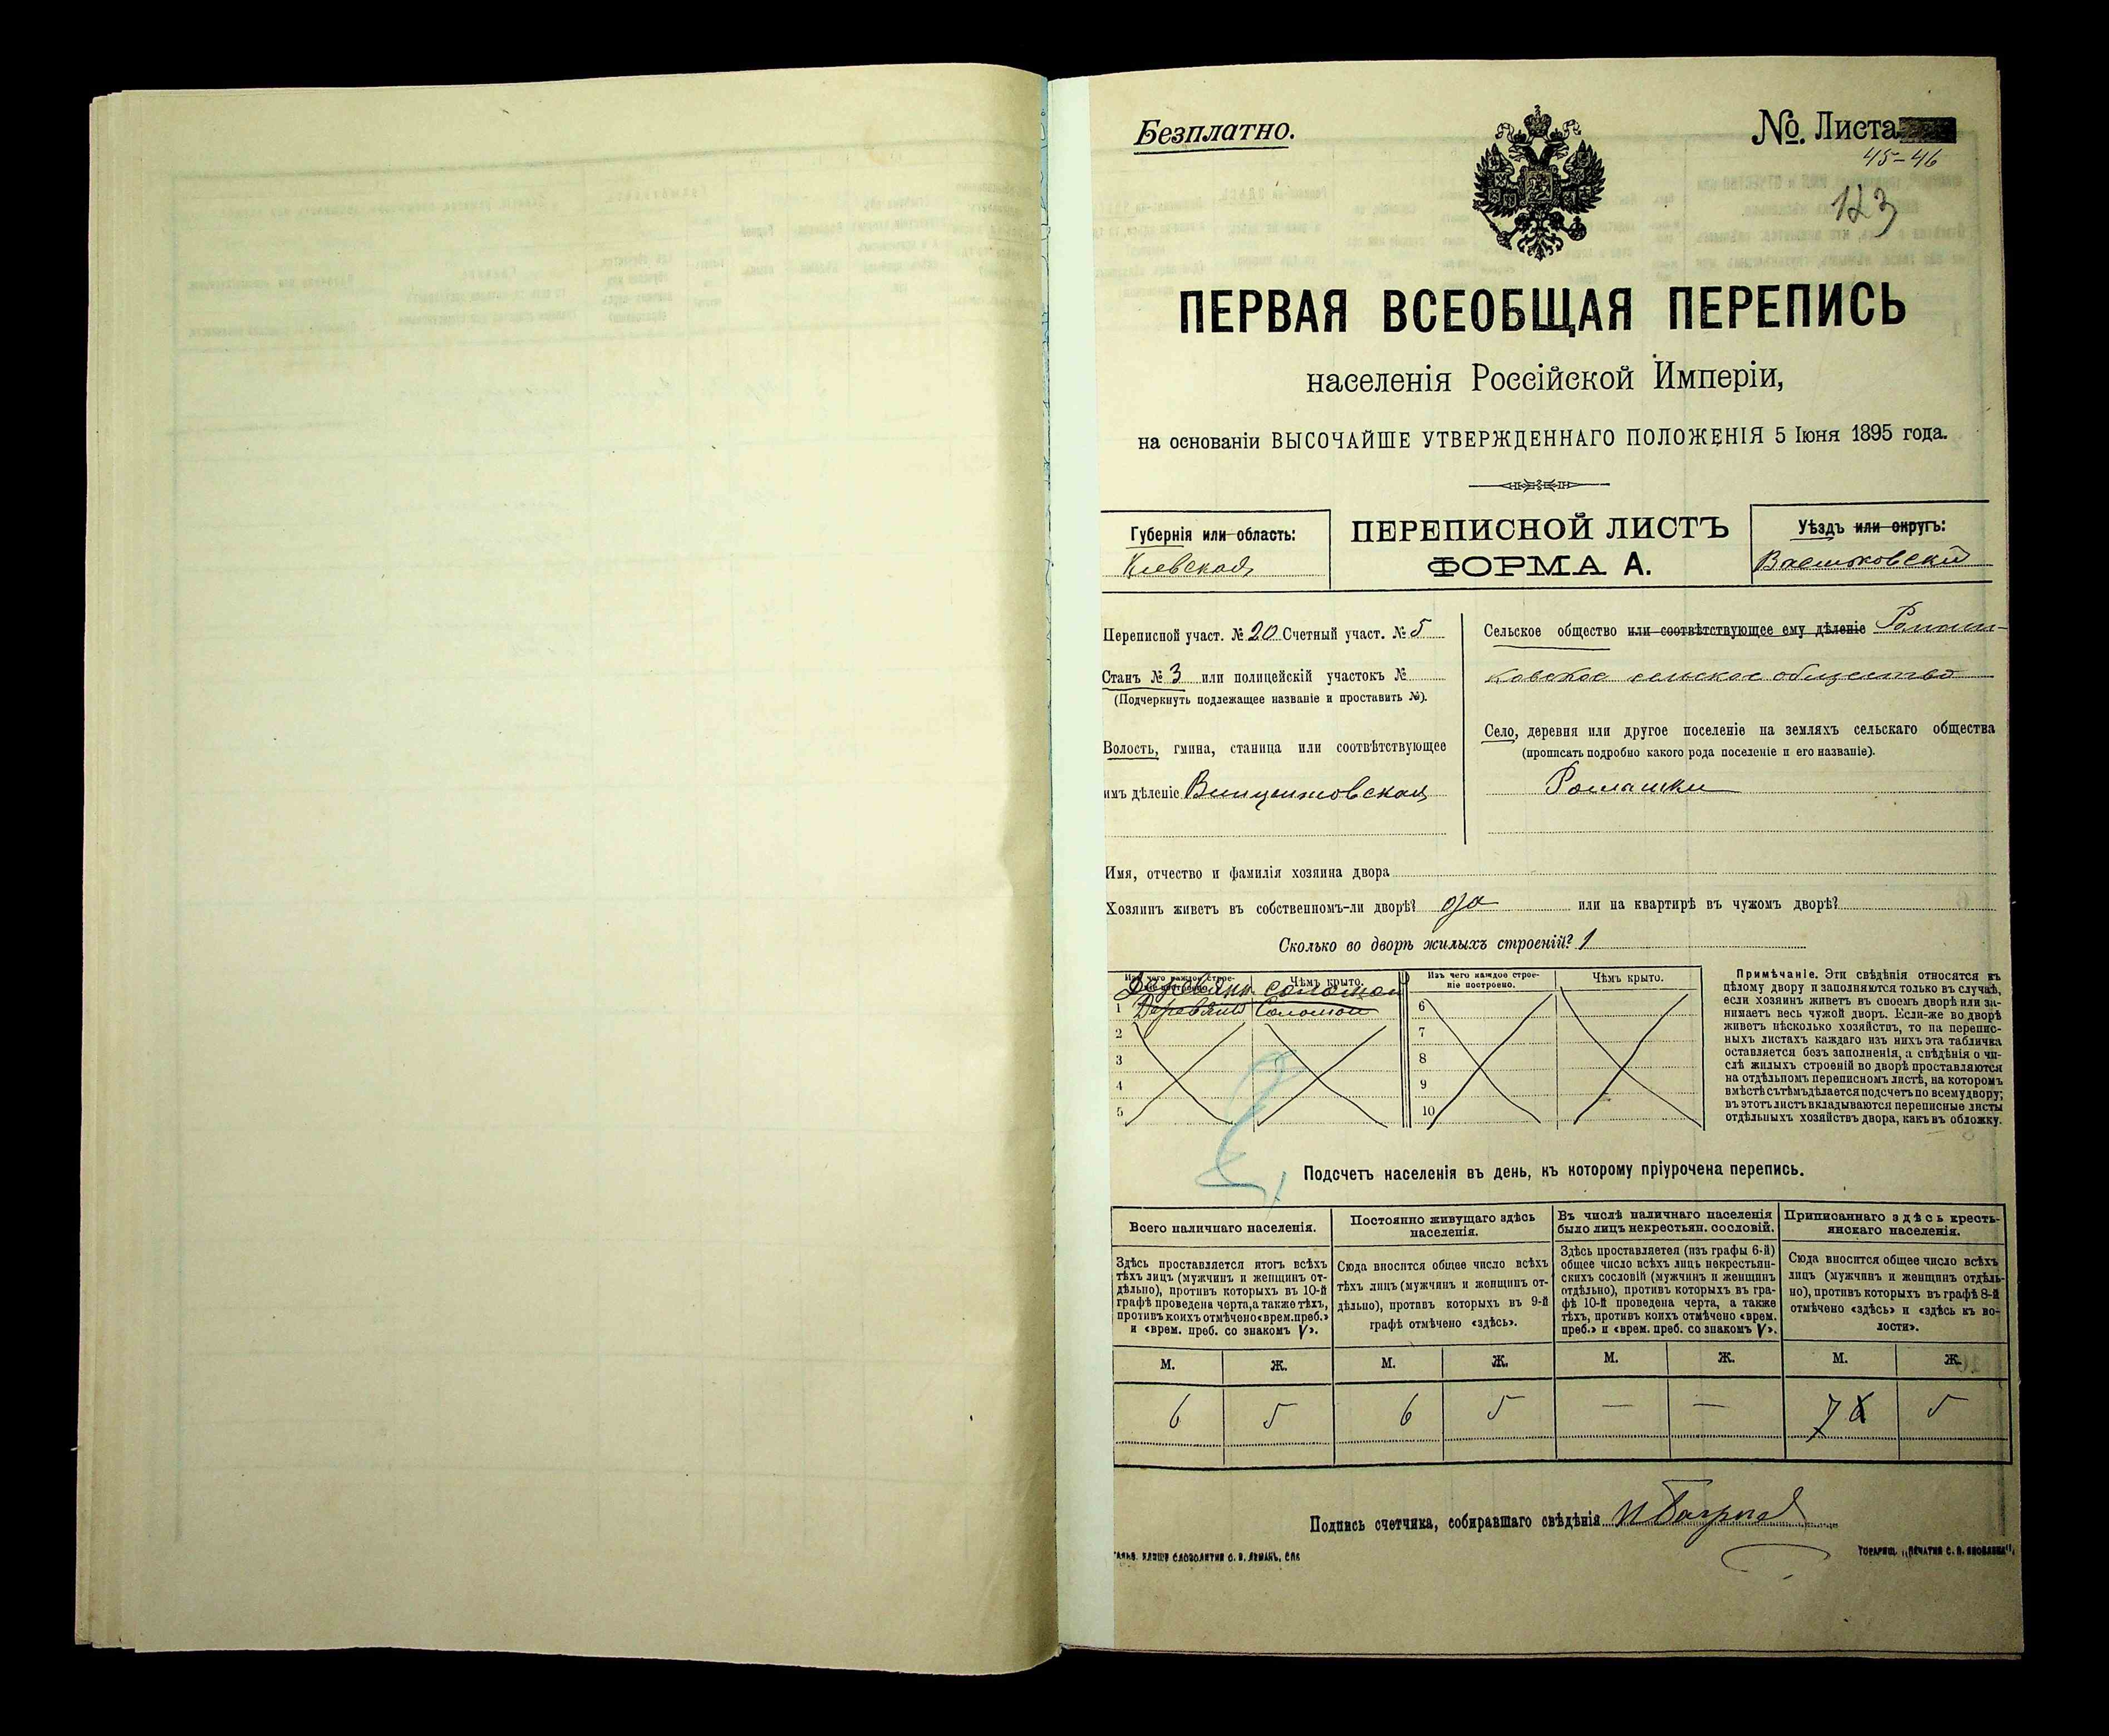 Безплатно.
№. Листа
45-46
123
ПЕРВАЯ ВСЕОБЩАЯ ПЕРЕПИСЬ
населенія Россійской Имперіи,
на основаніи ВЫСОЧАЙШЕ УТВЕРЖДЕННАГО ПОЛОЖЕНІЯ 5 Іюня 1895 года.
Губернія или область:
Кіевская
ПЕРЕПИСНОЙ ЛИСТЪ
ФОРМА А.
Уѣздъ или округъ:
Васильковскій
Переписной участ. № 20 Счетный участ. № 5
Станъ № 3 или полицейскій участокъ №
(Подчеркнуть подлежащее названіе и проставить №).
Волость, гмина, станица или соотвѣтствующее
имъ дѣленіе Винцентовская
Сельское общество или соотвѣтствующее ему дѣленіе Ромаш-
ковское сельское общество
Село, деревня или другое поселеніе на земляхъ сельскаго общества
(прописать подробно какого рода поселеніе и его названіе).
Ромашки
Имя, отчество и фамилія хозяина двора
Хозяинъ живетъ въ собственномъ-ли дворѣ? да или на квартирѣ въ чужомъ дворѣ?
Сколько во дворѣ жилыхъ строеній? 1
Изъ чего каждое строе-
ніе построено.
Чѣмъ крыто.
Деревянн. соломой
1 Деревянн Соломой
2
3
4
5
Изъ чего каждое строе-
ніе построено.
Чѣмъ крыто.
6
7
8
9
10
Примѣчаніе. Эти свѣдѣнія относятся къ
цѣлому двору и заполняются только въ случаѣ,
если хозяинъ живетъ въ своемъ дворѣ или за-
нимаетъ весь чужой дворъ. Если-же во дворѣ
живетъ нѣсколько хозяйствъ, то на перепис-
ныхъ листахъ каждаго изъ нихъ эта табличка
оставляется безъ заполненія, а свѣдѣнія о чи-
слѣ жилыхъ строеній во дворѣ проставляются
на отдѣльномъ переписномъ листѣ, на которомъ
вмѣстѣ съ тѣмъ дѣлается подсчетъ по всему двору;
въ этотъ листъ вкладываются переписные листы
отдѣльныхъ хозяйствъ двора, какъ въ обложку.
Подсчетъ населенія въ день, къ которому пріурочена перепись.
Всего наличнаго населенія.
Здѣсь проставляется итогъ всѣхъ
тѣхъ лицъ (мужчинъ и женщинъ от-
дѣльно), противъ которыхъ въ 10-й
графѣ проведена черта, а также тѣхъ,
противъ коихъ отмѣчено «врем. преб.»
и «врем. преб. со знакомъ V».
Постоянно живущаго здѣсь
населенія.
Сюда вносится общее число всѣхъ
тѣхъ лицъ (мужчинъ и женщинъ от-
дѣльно), противъ которыхъ въ 9-й
графѣ отмѣчено «здѣсь».
Въ числѣ наличнаго населенія
было лицъ некрестьян. сословій.
Здѣсь проставляется (изъ графы 6-й)
общее число всѣхъ лицъ некрестьян-
скихъ сословій (мужчинъ и женщинъ
отдѣльно), противъ которыхъ въ гра-
фѣ 10-й проведена черта, а также
тѣхъ, противъ коихъ отмѣчено «врем.
преб.» и «врем. преб. со знакомъ V».
Приписаннаго здѣсь кресть-
янскаго населенія.
Сюда вносится общее число всѣхъ
лицъ (мужчинъ и женщинъ отдѣль-
но), противъ которыхъ въ графѣ 8-й
отмѣчено «здѣсь» и «здѣсь къ во-
лости».
М. Ж. М. Ж. М. Ж. М. Ж.
6 5 6 5 — — 7 6 5
Подпись счетчика, собиравшаго свѣдѣнія
СЛОВОЛИТНЯ О. И. ЛЕМАНЪ, СПБ
ТОВАРИЩ. „ПЕЧАТНЯ С. П. ЯКОВЛЕВА".